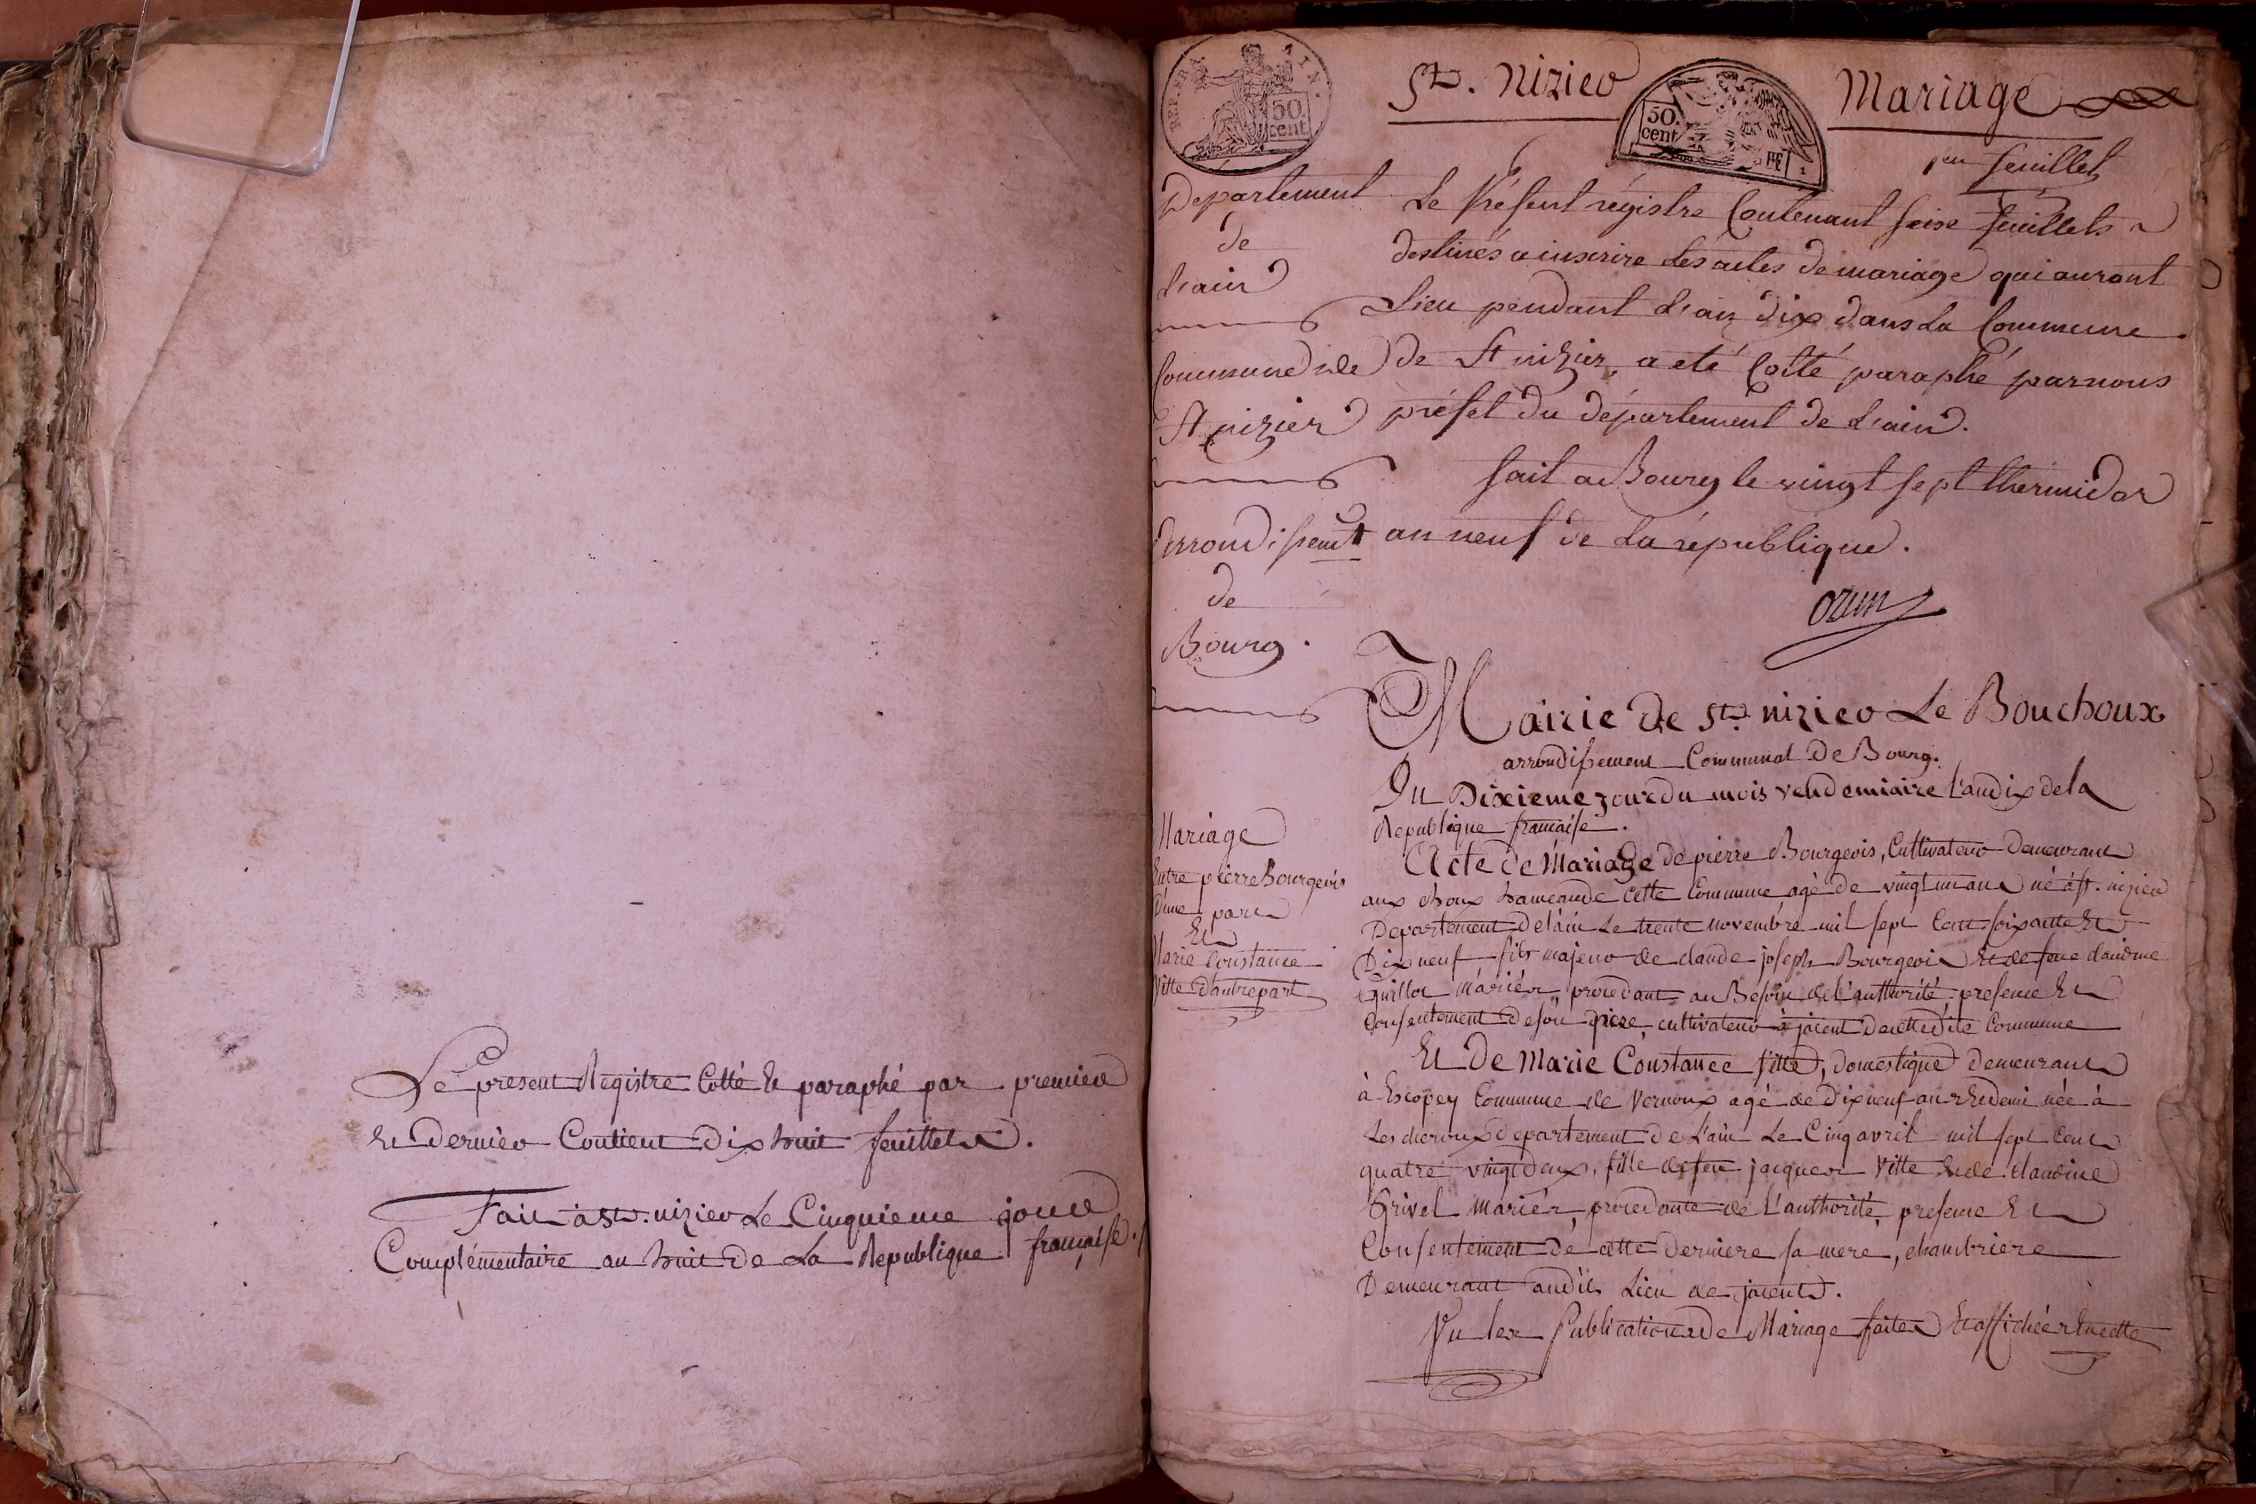 Le present Registre Cotté & paraphé par premier
et Dernier Contient Dix huit feuillets.
Fait a St. nizier Le Cinquieme jour
Complémentaire an huit de La Republique française.
REP. FRA.
50
cent
St. Nizier
50.
cent
Mariage
1er feuillet
Département
de
L'ain
Commune de
St nizier
arrondissemt
de
Bourg.
Le Présent régistre Contenant seise feuillets
destinés a inscrire les actes de mariage qui auront
Lieu pendant L'an dix dans La Commune
de St nizier, a eté Cotté paraphé par nous
préfet du département de L'ain.
fait a Bourg le vingt sept thermidor
an neuf de La république.
ozun
Mairie de St. nizier Le Bouchoux
arrondissement Communal De Bourg.
Du Dixieme jour du mois vendemiaire L'an dix de la
Republique francaise.
Mariage
Entre pierre Bourgeois
d'une part
Et
Marie Constance
Vitte d'autre part
Acte de Mariage de pierre Bourgeois, Cultivateur Demeurant
aux choux hameau de Cette Commune agé de vingt un an né à St. nizier
Departement de l'ain Le trente novembre mil sept Cent soixante Et
Dix neuf fils majeur de claude joseph Bourgeois Et de feue claudine
Guillot mariér, procedant au Besoin de L'authorité, presence Et
Consentement de son pere, cultivateur à joient De cette dite Commune
Et De Marie Constance Vitte, domestique demeurant
à Escopey Commune de Vernoux agé de Dix neuf ans Et demi née à
Les cheroux departement de L'ain Le Cinq avril mil sept Cent
quatre vingt deux, fille de feu jacques Vitte Et de claudine
Grivel mariér, procedante de L'authorité, presence Et
Consentement De cette derniere sa mere, chambriere
Demeurant audit Lieu de joient.
Vu les Publications de Mariage faites Et affichées En cette